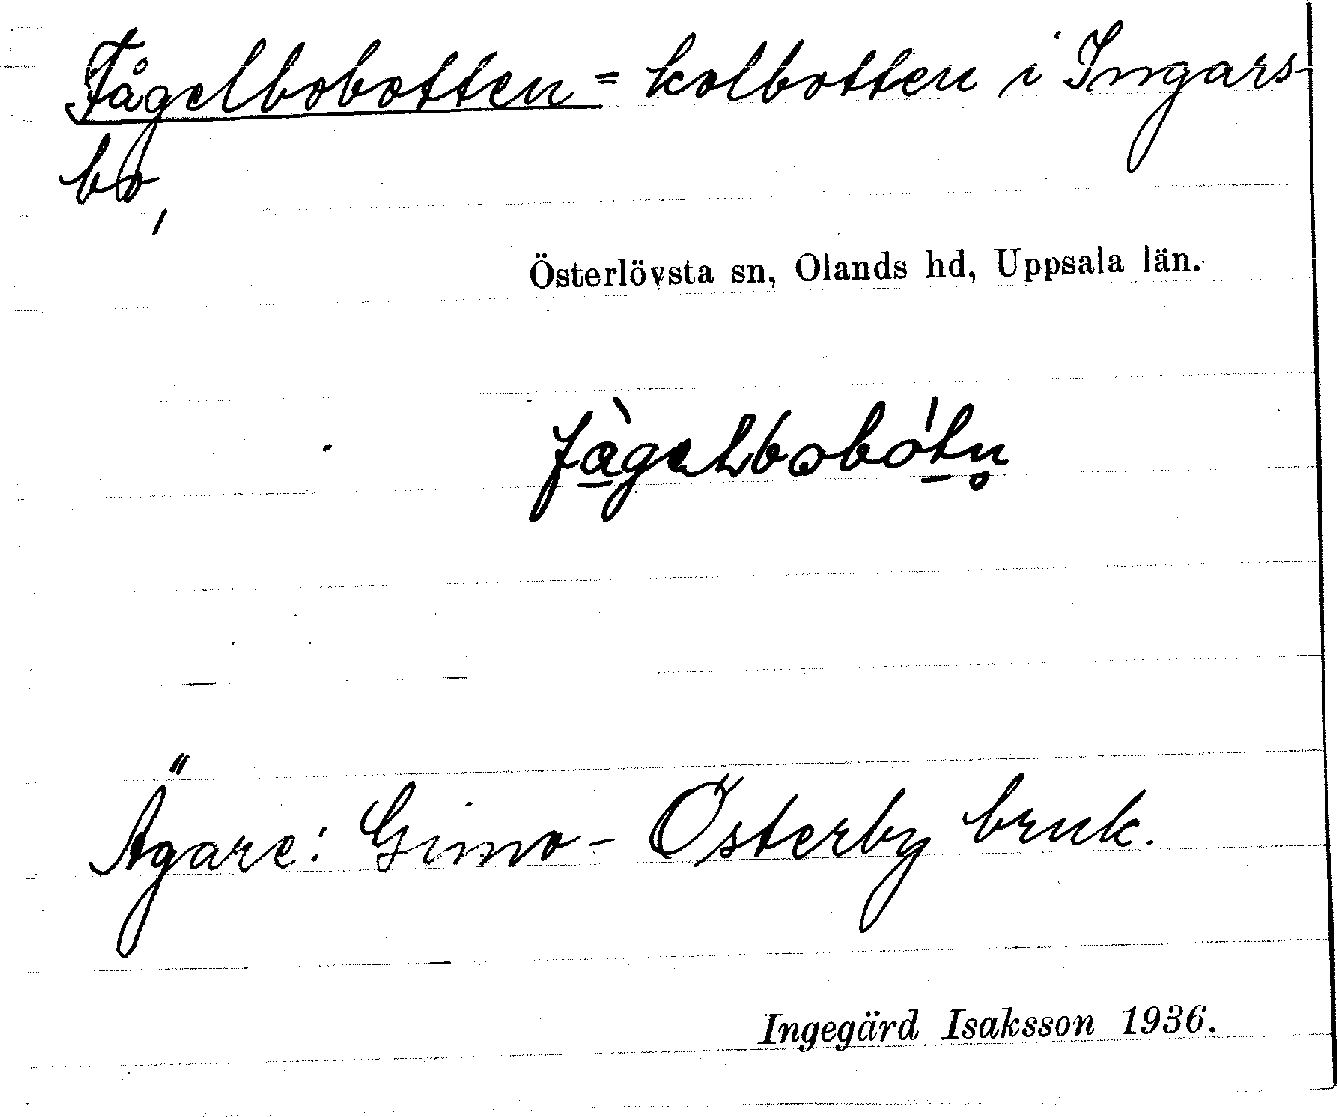 Fågelbobotten = kolbotten i Ingars-
bo,
Österlövsta sn, Olands hd, Uppsala län.
Ägare: Gimo-Österby bruk.
Ingegärd Isaksson 1936.